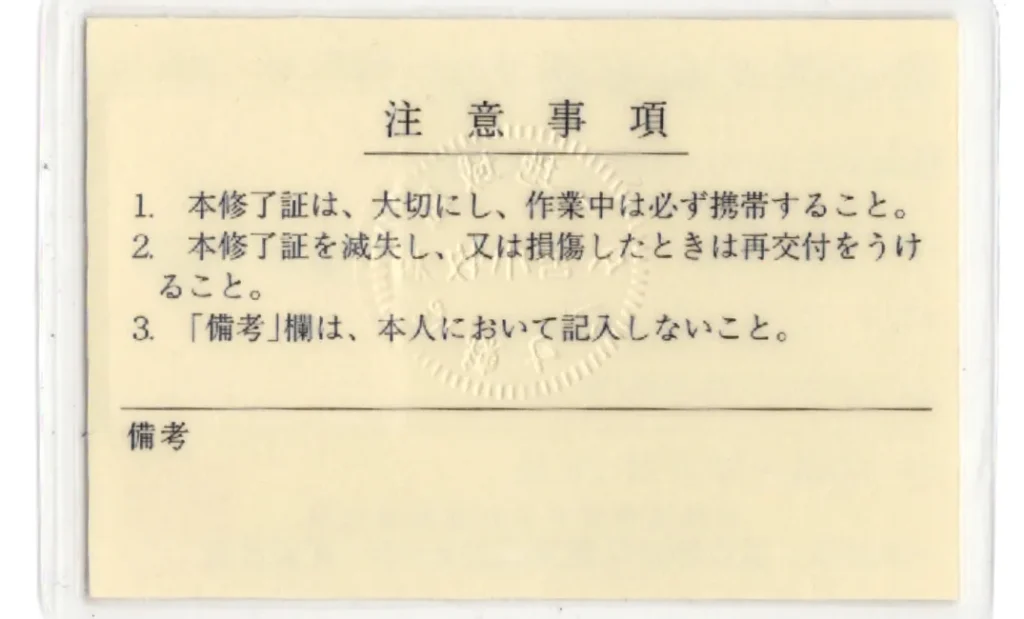 注意事項
1. 本修了証は、大切にし、作業中は必ず携帯すること。
2. 本修了証を滅失し、又は損傷したときは再交付をうけ
ること。
3. 「備考」欄は、本人において記入しないこと。
備考